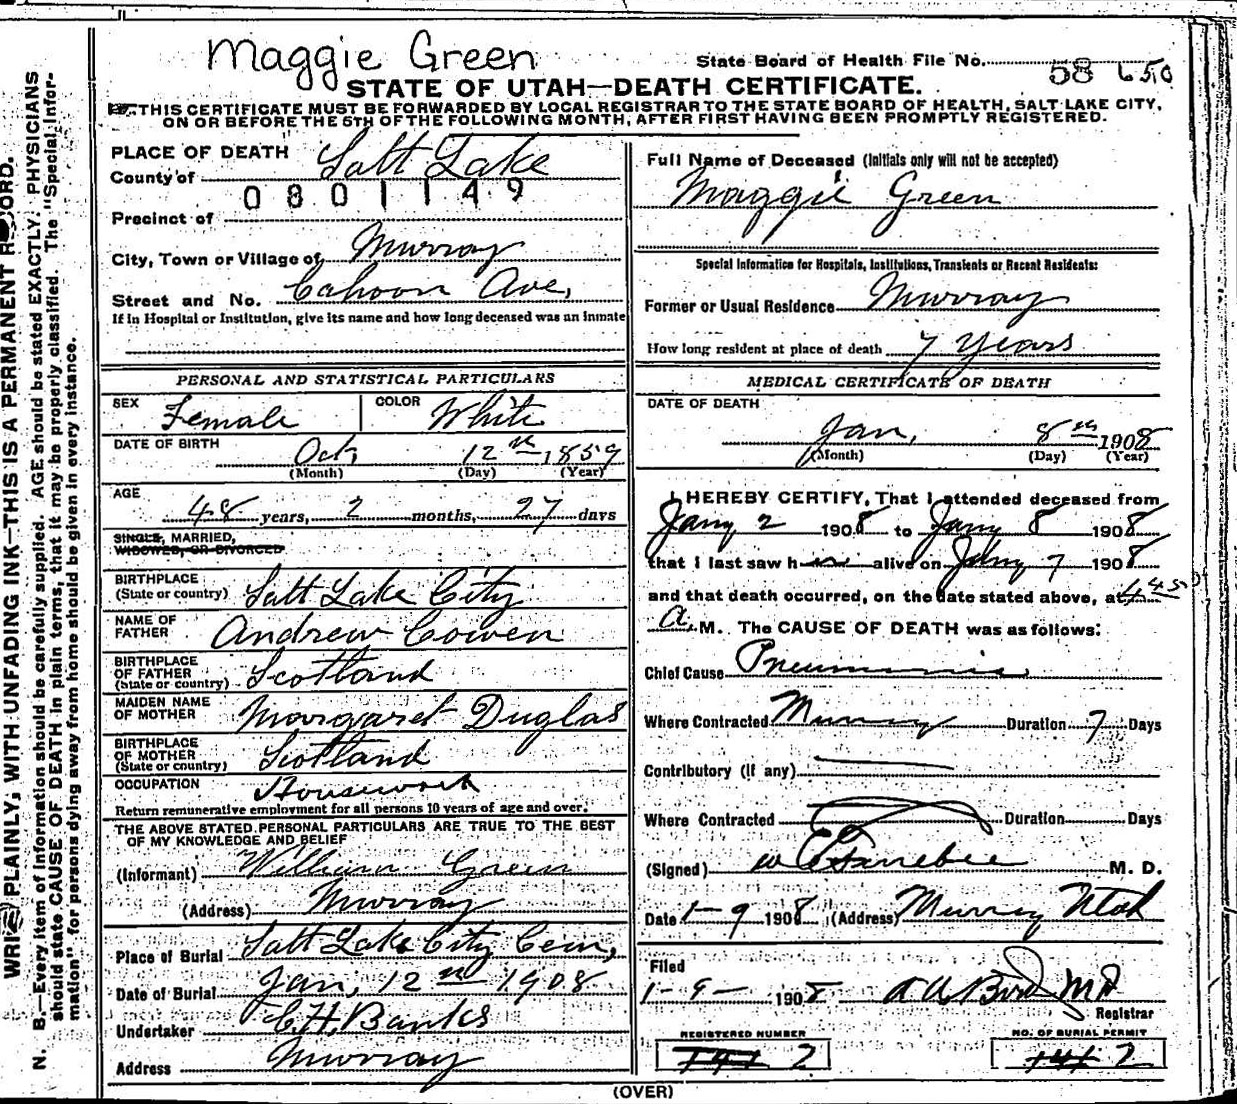 Maggie Green
State Board of Health File No. 58 650
STATE OF UTAH—DEATH CERTIFICATE.
THIS CERTIFICATE MUST BE FORWARDED BY LOCAL REGISTRAR TO THE STATE BOARD OF HEALTH, SALT LAKE CITY,
ON OR BEFORE THE 5TH OF THE FOLLOWING MONTH, AFTER FIRST HAVING BEEN PROMPTLY REGISTERED.
PLACE OF DEATH
County of Salt Lake
0801149
Precinct of
City, Town or Village of Murray
Street and No. Cahoon Ave,
If in Hospital or Institution, give its name and how long deceased was an inmate
PERSONAL AND STATISTICAL PARTICULARS
SEX Female COLOR White
DATE OF BIRTH Oct, 12th 1859
(Month) (Day) (Year)
AGE 48 years, 2 months, 27 days
SINGLE, MARRIED,
WIDOWED, OR DIVORCED
BIRTHPLACE
(State or country) Salt Lake City
NAME OF
FATHER Andrew Cowen
BIRTHPLACE
OF FATHER
(State or country) Scotland
MAIDEN NAME
OF MOTHER Margaret Duglas
BIRTHPLACE
OF MOTHER
(State or country) Scotland
OCCUPATION Housework
Return remunerative employment for all persons 10 years of age and over.
THE ABOVE STATED PERSONAL PARTICULARS ARE TRUE TO THE BEST
OF MY KNOWLEDGE AND BELIEF
(Informant) William Green
(Address) Murray
Place of Burial Salt Lake City Cem,
Date of Burial Jan, 12th 1908
Undertaker C.H. Banks
Address Murray
Full Name of Deceased (Initials only will not be accepted)
Maggie Green
Special Information for Hospitals, Institutions, Transients or Recent Residents:
Former or Usual Residence Murray
How long resident at place of death 7 Years
MEDICAL CERTIFICATE OF DEATH
DATE OF DEATH
Jan, 8th 1908
(Month) (Day) (Year)
I HEREBY CERTIFY, That I attended deceased from
Jany 2 1908 to Jany 8 1908
that I last saw her alive on Jany 7 1908
and that death occurred, on the date stated above, at 4.45
A. M. The CAUSE OF DEATH was as follows:
Chief Cause Pneumonia
Where Contracted Murray Duration 7 Days
Contributory (if any)
Where Contracted Duration Days
(Signed) M. D.
Date 1-9 1908 (Address) Murray Utah
Filed
1-9- 1908 A A Bird MD
Registrar
REGISTERED NUMBER
141 2
NO. OF BURIAL PERMIT
141 2
(OVER)
WRITE PLAINLY, WITH UNFADING INK—THIS IS A PERMANENT RECORD.
N. B.—Every item of information should be carefully supplied. AGE should be stated EXACTLY. PHYSICIANS
should state CAUSE OF DEATH in plain terms, that it may be properly classified. The "Special Infor-
mation" for persons dying away from home should be given in every instance.